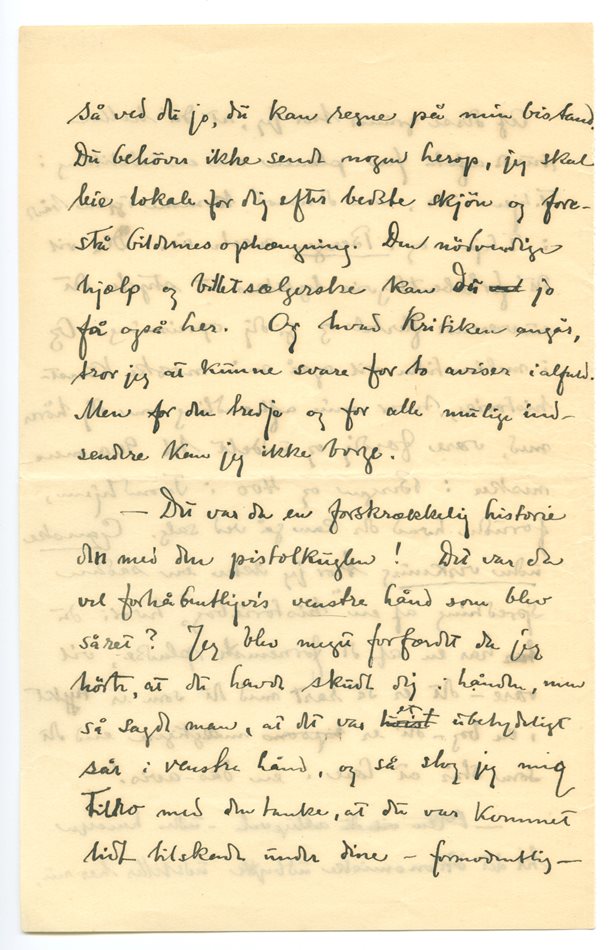 så ved du jo, du kan regne på min bistand.
Du behøver ikke sende nogen herop, jeg skal
leie lokale for dig efter bedste skjön og fore-
stå bildernes ophængning. Den nödvendige
hjælp og billetsælgerske kan du jo
få også her. Og hvad Kritiken angår,
tror jeg at kunne svare for to aviser ialfald.
Men for den tredje og for alle mulige ind-
sendere kan jeg ikke borge.
— Det var da en forskrækkelig historie
den med den pistolkuglen! Det var da
vel forhåbentligvis venstre hånd som blev
såret? Jeg blev meget forfærdet da jeg
hörte, at du havde skudt dig i hånden, men
så sagde man, at det var et ubetydeligt
sår i venstre hånd, og så slog jeg mig
Tilro med den tanke, at du var kommet
lidt tilskade under dine – formodentlig –